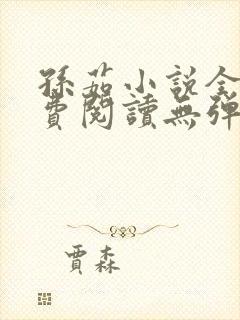 孫茹小說全
費閱讀無彈
賈森